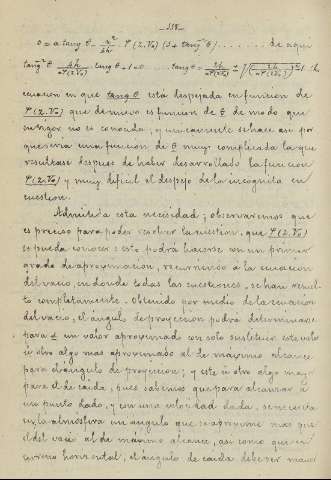 0 = a tang θ - x²/2h · φ(z.V₀) (1 + tang² θ) ........ de aqui
tang² θ - 2h/xφ(z.V₀) tang θ + 1 = 0 ..... tang θ =
ecuacion en que tang θ está despejada en funcion de
φ(z.V₀) que de nuevo es funcion de θ de modo que
en rigor no es conocida, y unicamente se hace asi por
que seria una funcion de θ muy complicada la que
resultase despues de haber desarrollado la funcion
φ(z.V₀) y muy dificil el despejo de la incognita en
cuestion.
Admitida esta necesidad; observaremos que
es preciso para poder resolver la cuestion, que φ(z.V₀)
se pueda conocer: esto podrá hacerse con un primer
grado de aproximacion, recurriendo á la ecuacion
del vacio, en donde todas las cuestiones, se han resuel-
to completamente. Obtenido por medio de la ecuacion
del vacio, el ángulo de proyeccion podrá determinarse
para un valor aproximado con solo sustituir este valor
ú otro algo mas aproximado al de máximo alcance
para el ángulo de proyeccion; y este ú otro algo mayor
para el de caida, pues sabemos que para alcanzar á
un punto dado, y con una velocidad dada, se necesita
en la atmósfera un ángulo que se aproxime mas que
el del vacio al de máximo alcance, asi como que en
terreno horizontal, el ángulo de caida debe ser mayor